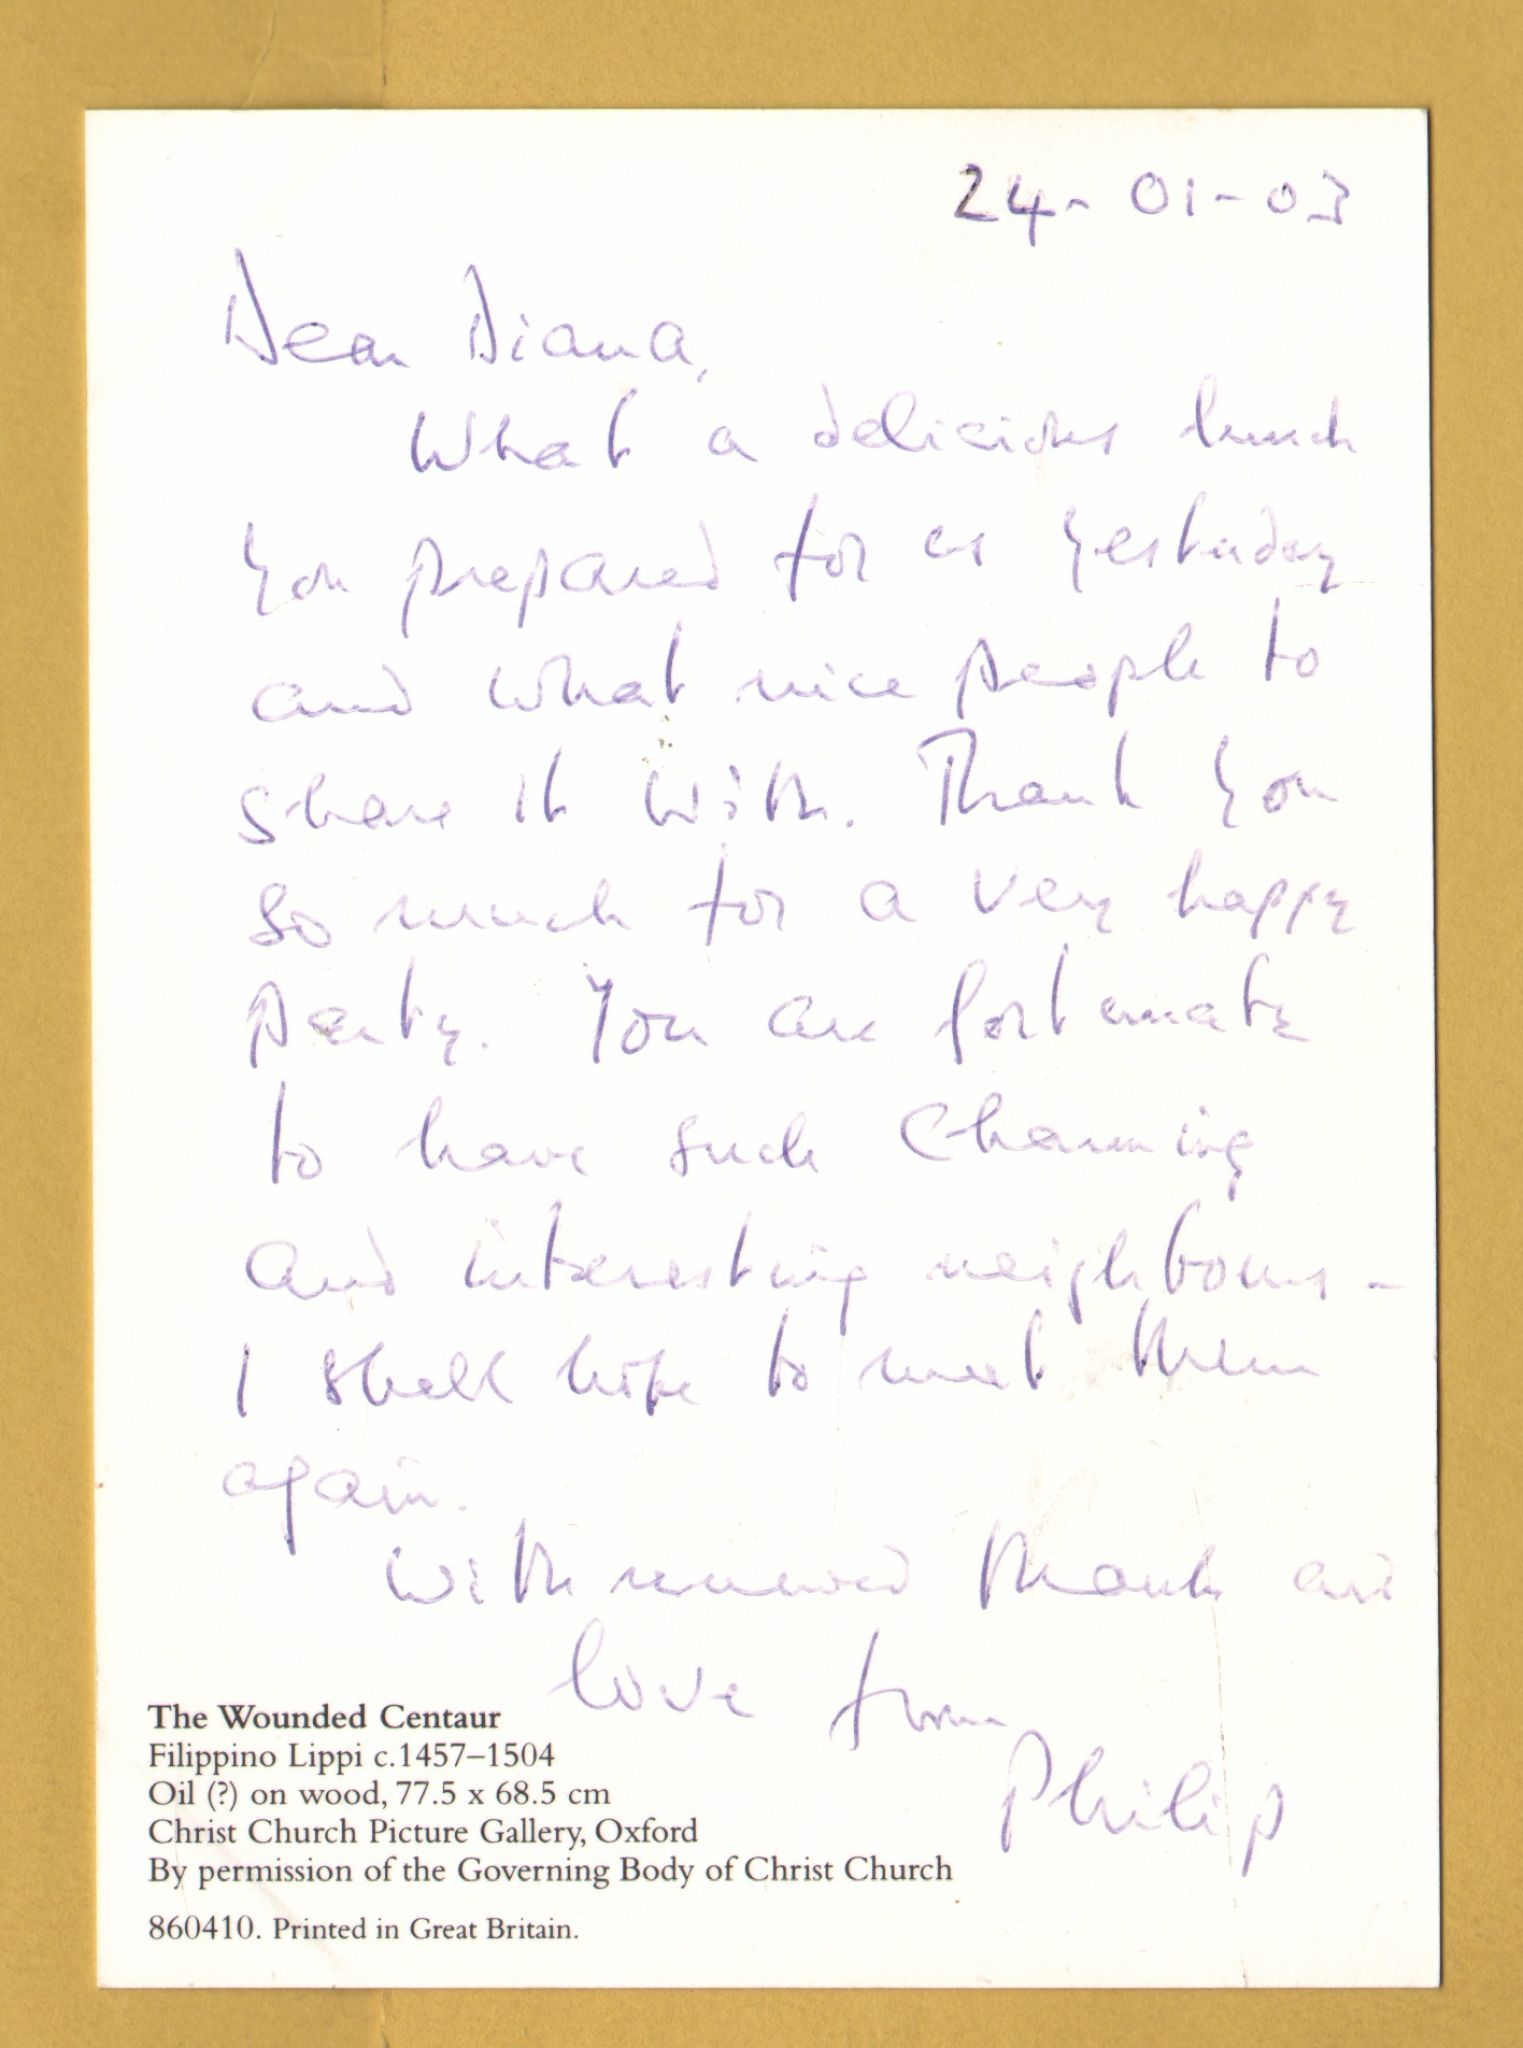 24-01-03
Dear Diana,
What a delicious lunch
you prepared for us yesterday
and what nice people to
share it with. Thank you
so much for a very happy
party. You are fortunate
to have such charming
and interesting neighbours -
I shall hope to meet them
again.
With renewed thanks and
love from
Philip
The Wounded Centaur
Filippino Lippi c.1457–1504
Oil (?) on wood, 77.5 x 68.5 cm
Christ Church Picture Gallery, Oxford
By permission of the Governing Body of Christ Church
860410. Printed in Great Britain.